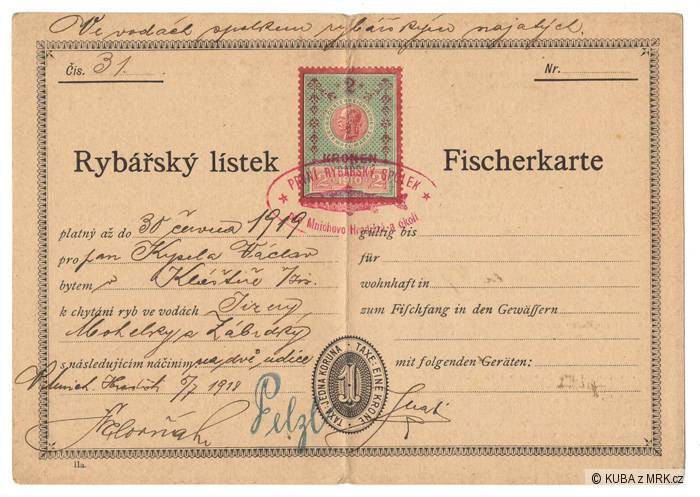 Ve vodách spolkem rybářským najatých.
Čís. 31.
Nr.
2
KRONEN
1910
Rybářský lístek
Fischerkarte
PRVNÍ RYBÁŘSKÝ SPOLEK
Mnichovo Hradiště a okolí
platný až do 30 června 1919
pro pan Kysela Václav
bytem v Klášteře
k chytání ryb ve vodách Jizery
Mohelky a Zábrdky
s následujícím náčiním na dvě udice
7 1918
Pelzl
giltig bis
für
wohnhaft in
zum Fischfang in den Gewässern
mit folgenden Geräten:
TAXA JEDNA KORUNA · TAXE: EINE KRONE
1
IIa.
© KUBA z MRK.cz